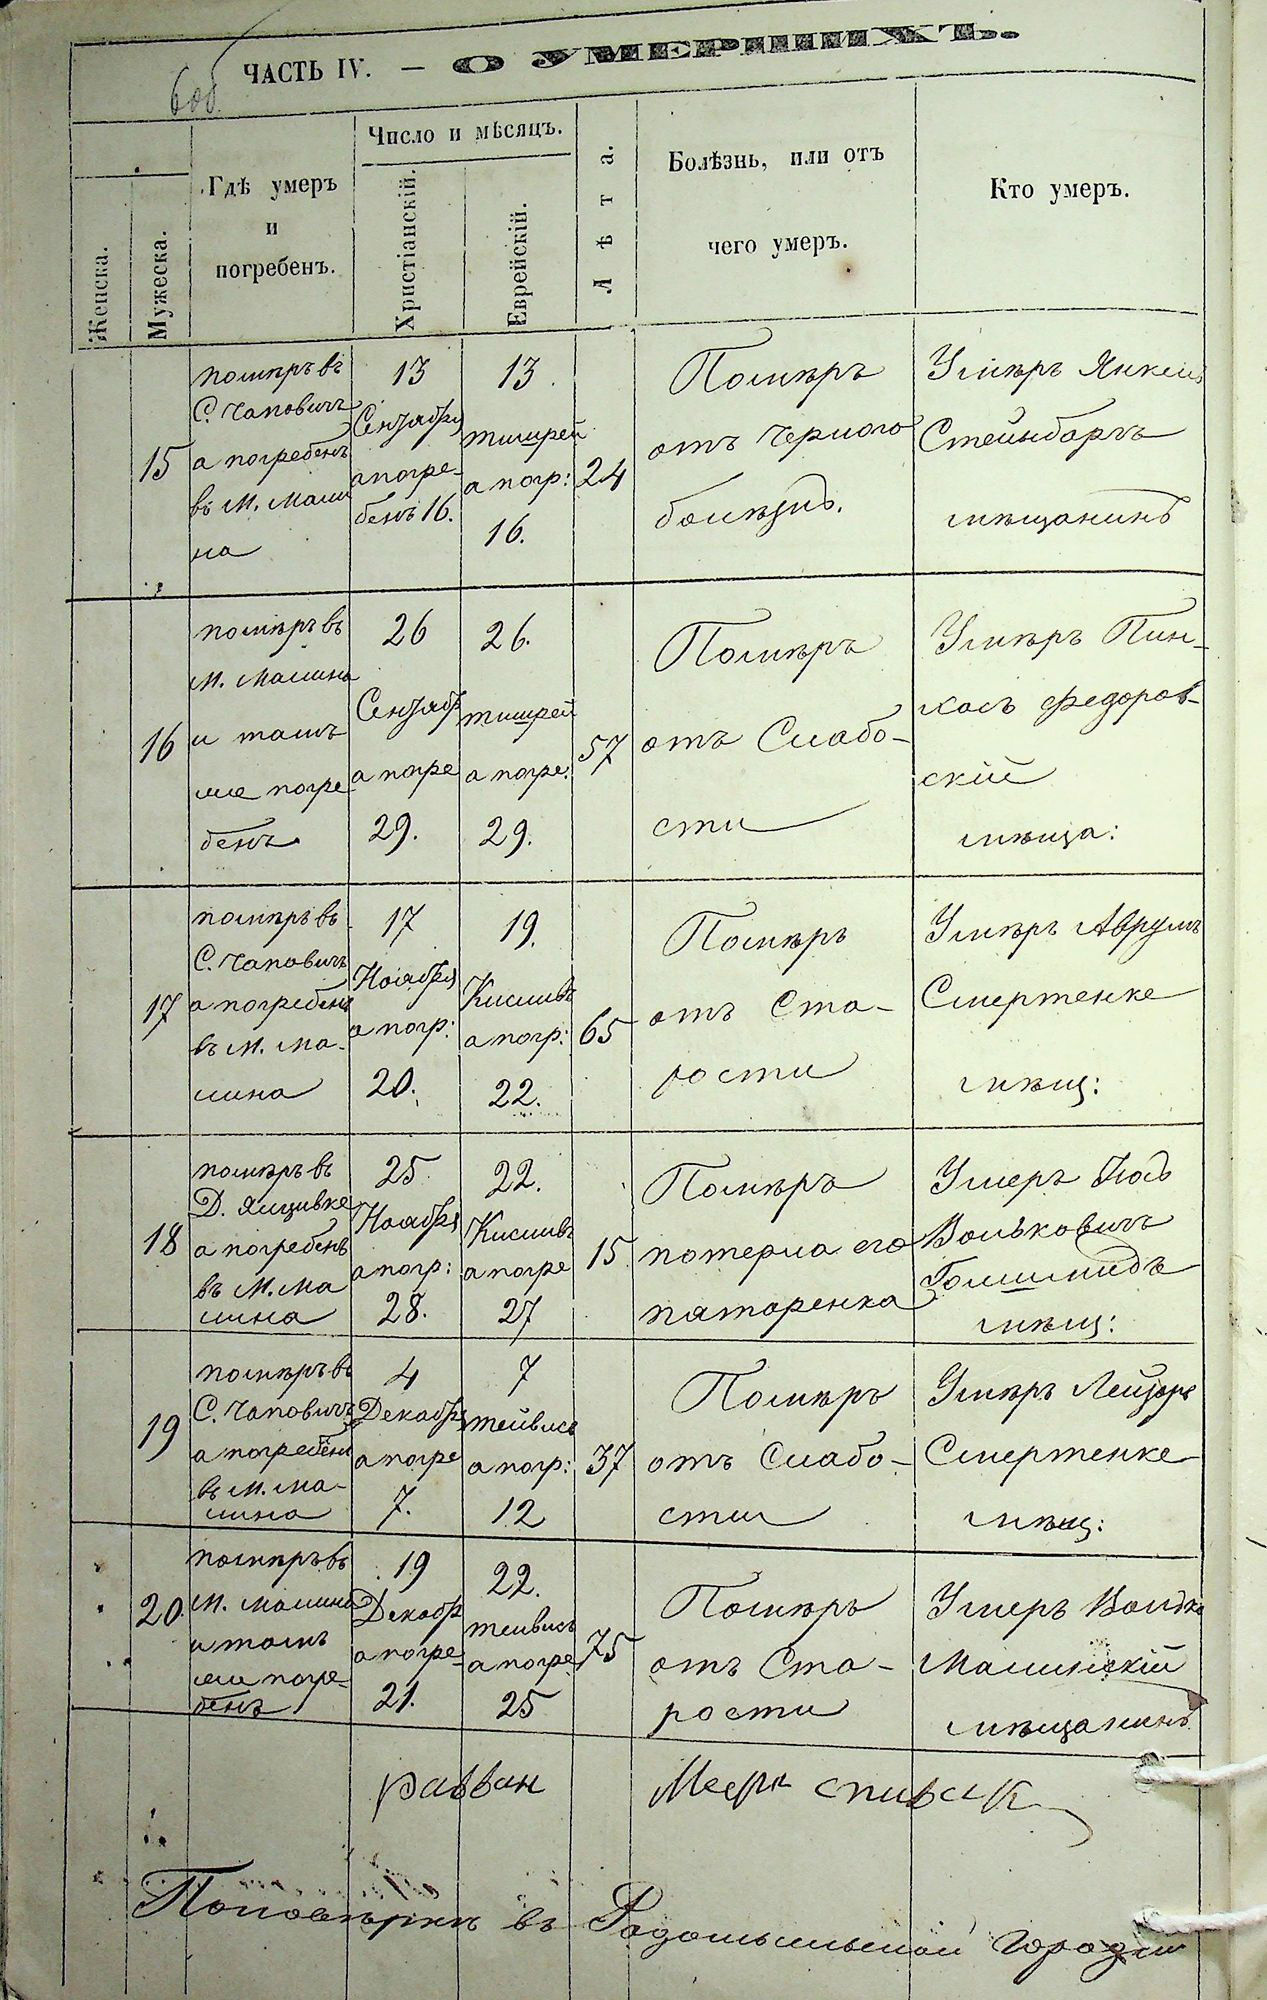 6 об
ЧАСТЬ IV. — О УМЕРШИХЪ.
Женска.
Мужеска.
Гдѣ умеръ
и
погребенъ.
Число и мѣсяцъ.
Христіанскій.
Еврейскій.
Лѣта.
Болѣзнь, или отъ
чего умеръ.
Кто умеръ.
15
помѣръ въ
С. Чаповичъ
а погребенъ
въ М. Мали
на
13
Сентября
а погре-
бенъ 16.
13.
тишрей
а погр:
16.
24
Помѣръ
отъ Черного
болѣзнь.
Умѣръ Янкель
Стейнбаргъ
мѣщанинъ
16
помѣръ въ
М. Малина
и тамъ
же погре
бенъ
26
Сентябр
а погре
29.
26.
тишрей
а погре.
29.
57
Помѣръ
отъ Слабо-
сти
Умѣръ Пин-
хасъ Федоров-
скій
мѣща:
17
помѣръ въ
С. Чаповичъ
а погребенъ
въ М. Ма-
лина
17
Ноября
а погр:
20.
19.
Кисливъ
а погр:
22.
65
Помѣръ
отъ Ста-
рости
Умѣръ Аврумъ
Смертенке
мѣщ:
18
помѣръ въ
Д. Ялцивке
а погребенъ
въ М. Ма
лина
25
Ноября
а погр:
28.
22.
Кисливъ
а погре
27
15
Помѣръ
потерла его
Умеръ Іось
Вольковичъ
мѣщ:
19
помѣръ въ
С. Чаповичъ
а погребенъ
въ М. Ма-
лина
4
Декабря
а погре
7.
7
тейвись
а погр:
12
37
Помѣръ
отъ Слабо-
сти
Умѣръ Лейзоръ
Смертенке
мѣщ:
20.
помѣръ въ
М. Малина
и тамъ
же погре-
бенъ
19
Декабр
а погре-
21.
22.
теивись
а погре
25
75
Помѣръ
отъ Ста-
рости
Умеръ
Малинскій
мѣщанинъ
раввин Меер спивак
въ Радомысльской Город